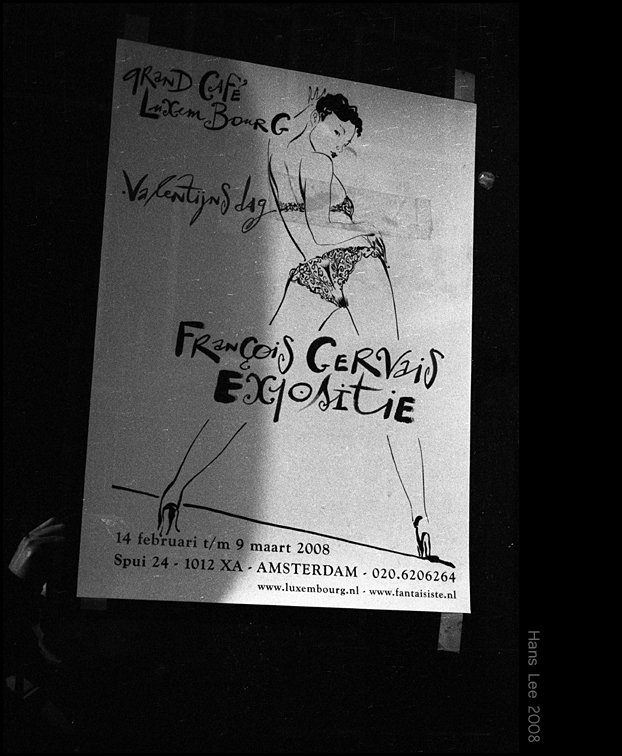 GRAND CAFÉ
LuxemBourG
Valentijns dag
François GERVAis
EXPOSITiE
14 februari t/m 9 maart 2008
Spui 24 - 1012 XA - AMSTERDAM - 020.6206264
www.luxembourg.nl - www.fantaisiste.nl
Hans Lee 2008